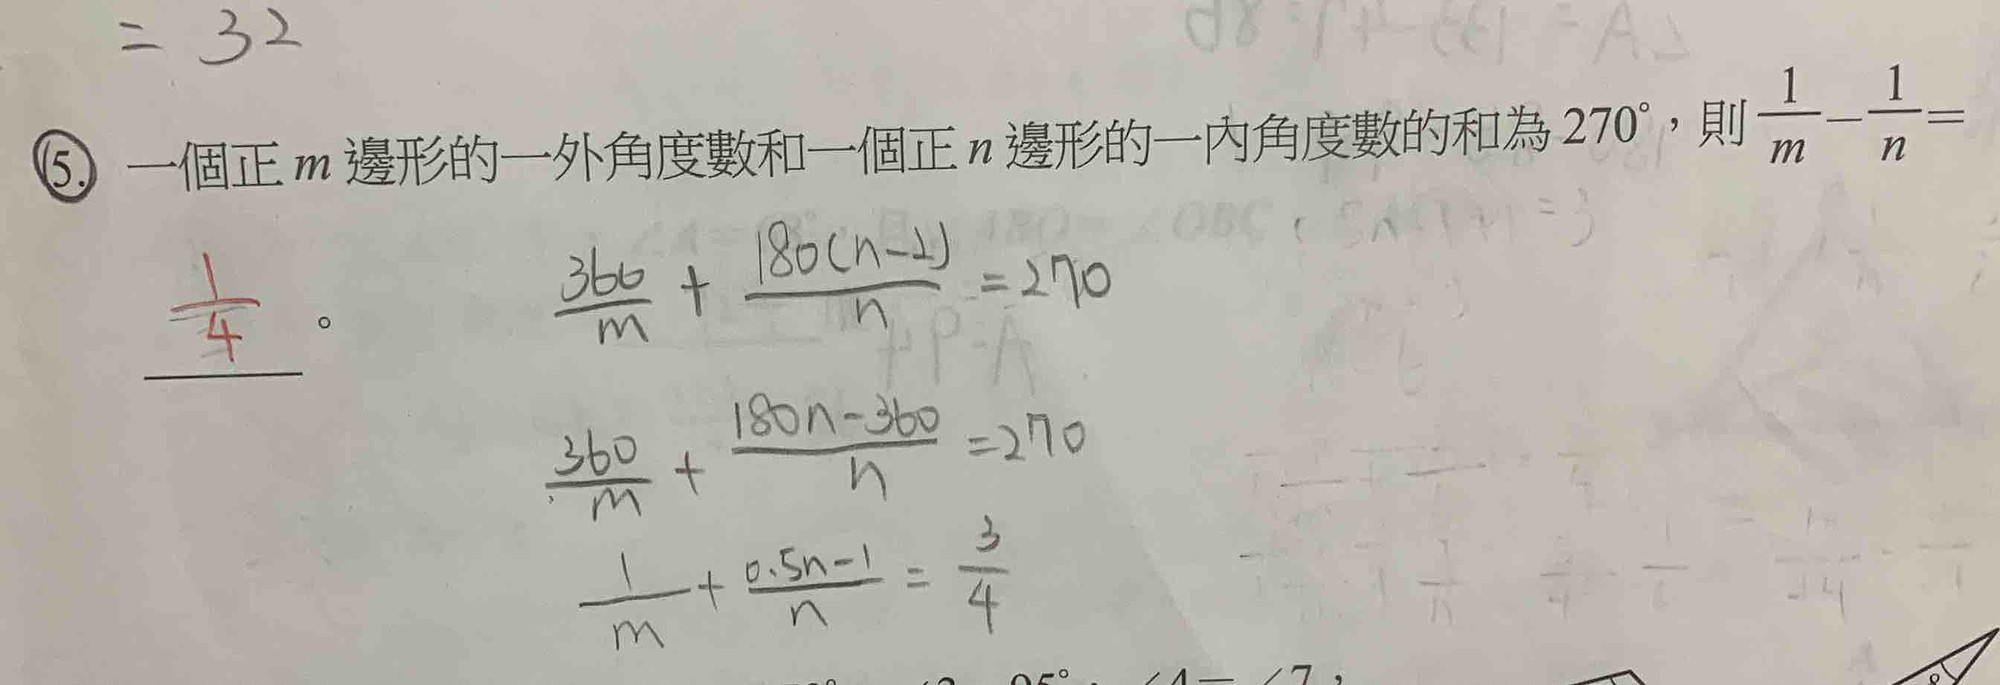 = 32
5. 一個正 m 邊形的一外角度數和一個正 n 邊形的一內角度數的和為 270°，則 1/m − 1/n =
1/4 。
360/m + 180(n-2)/n = 270
360/m + 180n-360/n = 270
1/m + 0.5n-1/n = 3/4